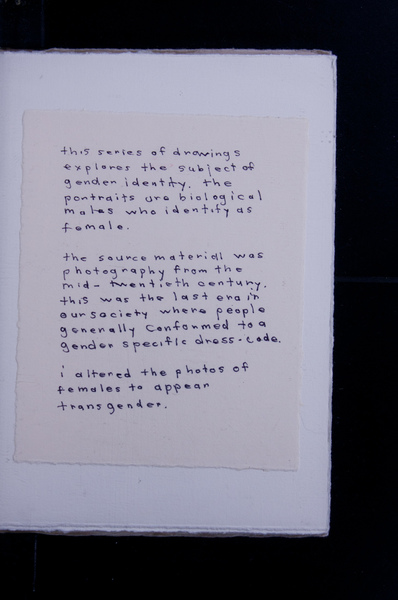 this series of drawings
explores the subject of
gender identity. the
portraits are biological
males who identify as
female.
the source material was
photography from the
mid-twentieth century.
this was the last era in
our society where people
generally conformed to a
gender specific dress-code.
i altered the photos of
females to appear
transgender.